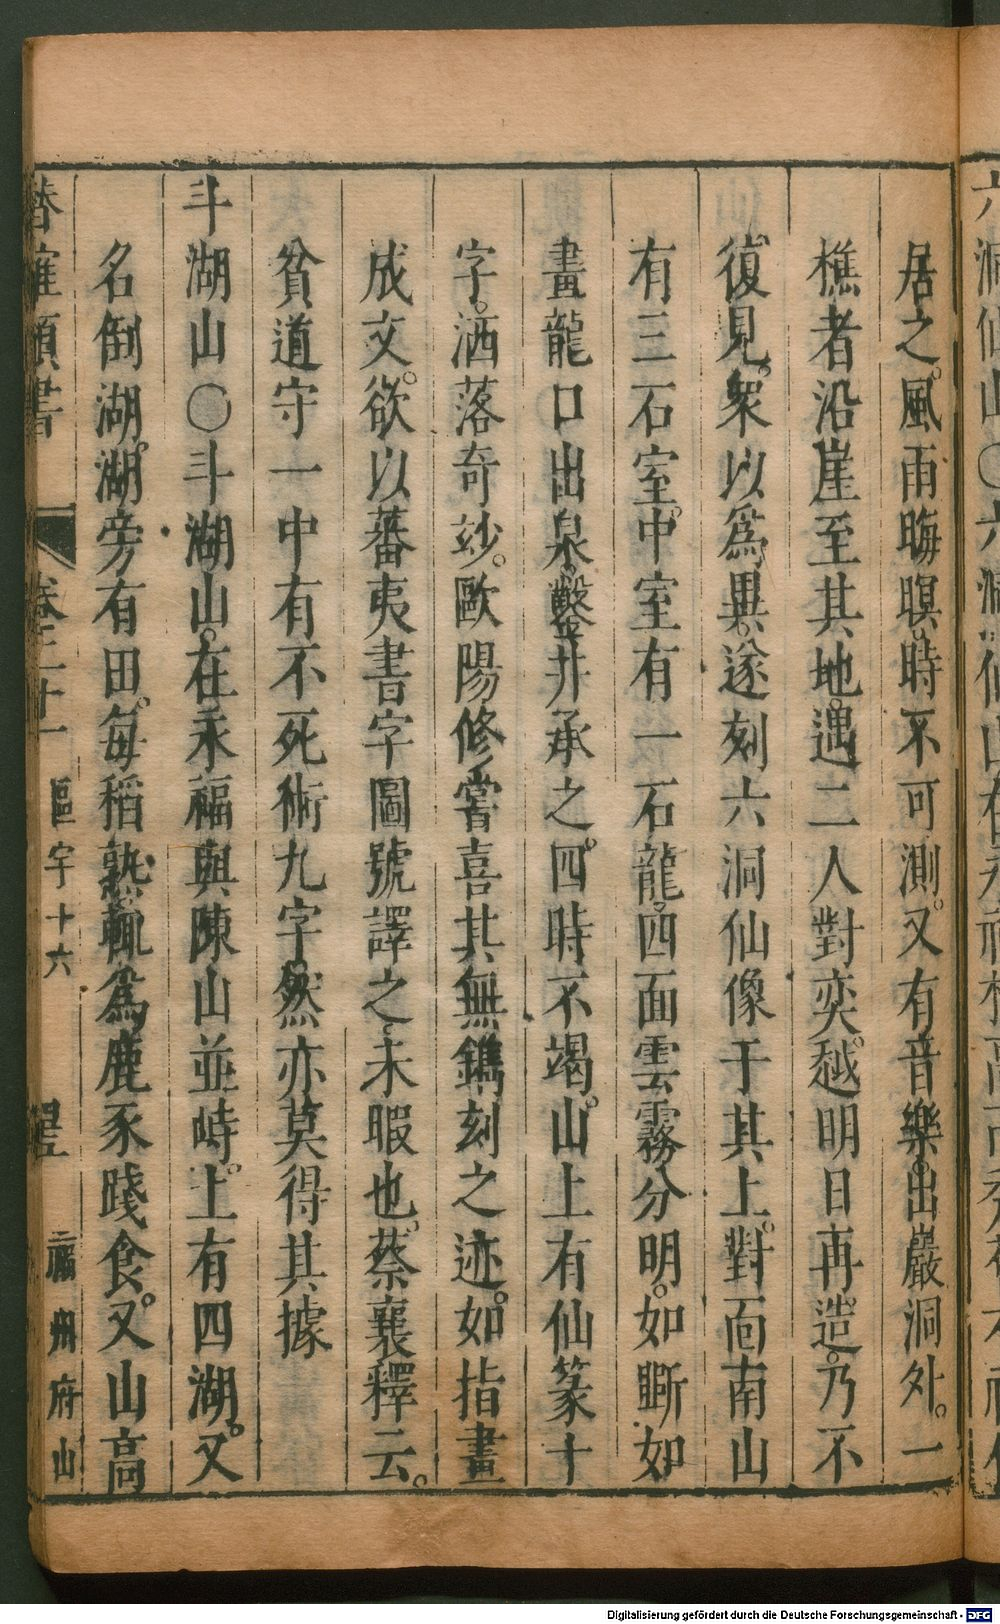 居之。風雨晦暝。時不可測。又有音樂。出巖洞外。一
樵者沿崖至其地。遇二人對奕。越明日再造。乃不
復見。衆以爲異。遂刻六洞仙像于其上。對面南山
有三石室。中室有一石龍。四面雲霧分明。如斵如
畫龍口出泉。鑿井承之。四時不竭。山上有仙篆十
字。洒落奇玅。歐陽修嘗喜其無鐫刻之迹。如指畫
成文。欲以蕃夷書字圖號譯之。未暇也。蔡襄釋云。
貧道守一中有不死術九字。然亦莫得其據
斗湖山〇斗湖山。在永福與陳山並峙。上有四湖。又
名倒湖。湖旁有田。每稻熟輒爲鹿豕踐食。又山高
卷三十一 區宇十六 福州府山
Digitalisierung gefördert durch die Deutsche Forschungsgemeinschaft - DFG